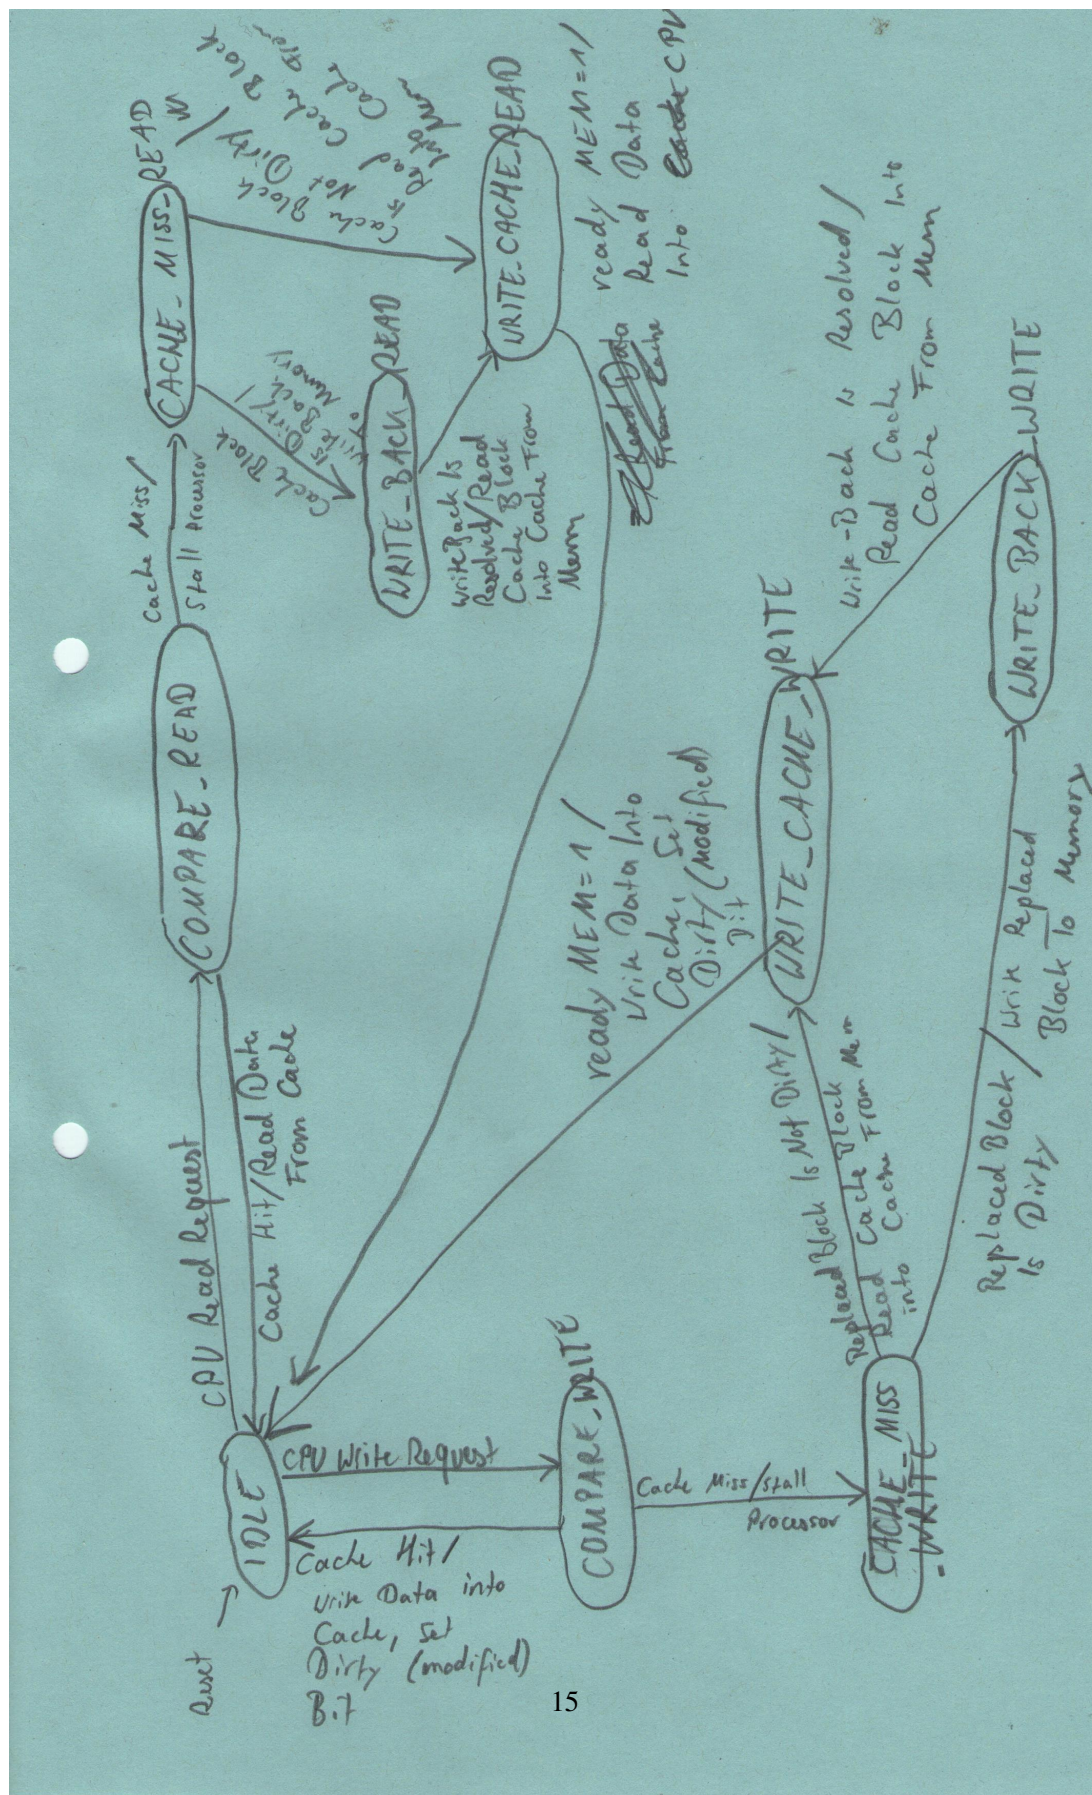 Reset
IDLE
CPU Read Request
Cache Hit/Read Data
From Cache
COMPARE_READ
Cache Miss/
Stall Processor
CACHE_MISS_READ
Cache Block
Is Dirty/
Write Back
To Memory
Cache Block
Is Not Dirty/
Read Cache Block
Into Cache From
Mem
WRITE_BACK_READ
WriteBack Is
Resolved/Read
Cache Block
Into Cache From
Mem
WRITE_CACHE_READ
ready MEM=1/
Read Data
Into CPU
CPU Write Request
Cache Hit/
Write Data into
Cache, Set
Dirty (modified)
Bit
COMPARE_WRITE
Cache Miss/Stall
Processor
CACHE_MISS
_WRITE
Replaced Block Is Not Dirty/
Read Cache Block
into Cache From Mem
WRITE_CACHE_WRITE
ready MEM=1/
Write Data Into
Cache, Set
Dirty (modified)
Bit
Replaced Block / Write Replaced
Is Dirty Block To Memory
WRITE_BACK_WRITE
Write-Back is Resolved/
Read Cache Block Into
Cache From Mem
15